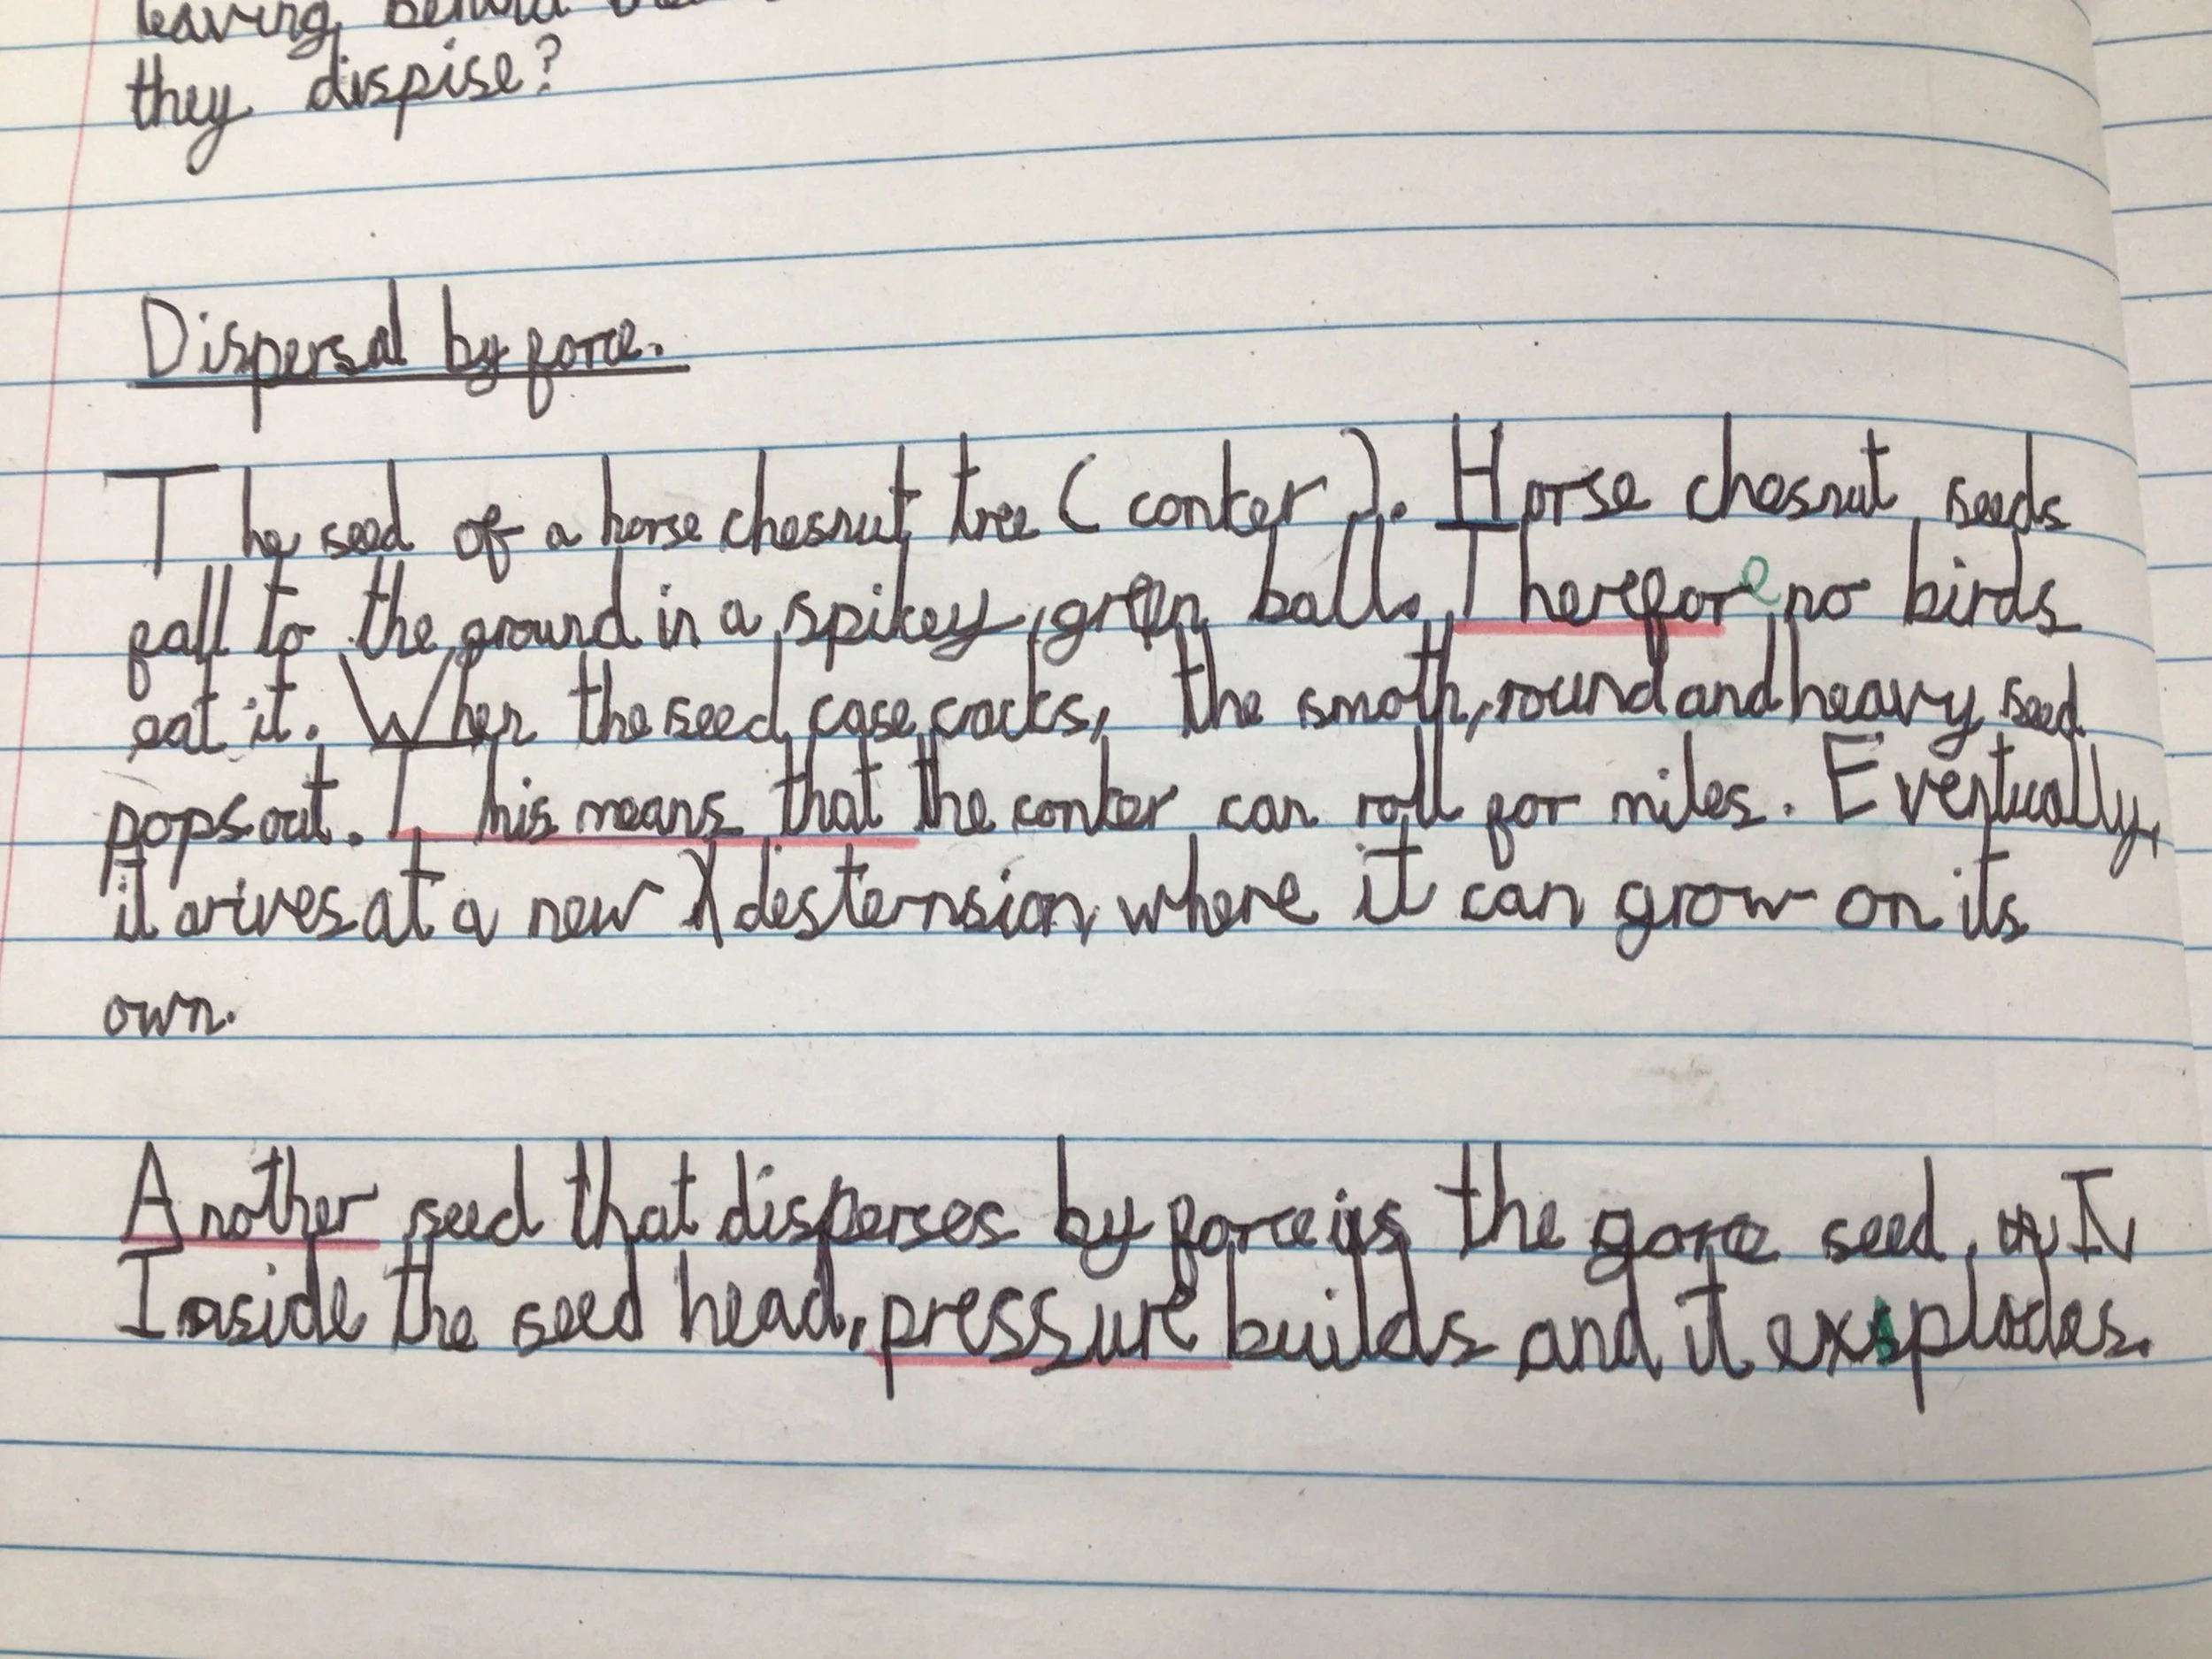 leaving behind
they dispise?
Dispersal by force.
The seed of a horse chesnut tree (conker). Horse chesnut seeds
fall to the ground in a spikey, green ball. Therefore no birds
eat it. When the seed case cracks, the smoth, round and heavy seed
pops out. This means that the conker can roll for miles. Eventually,
it arives at a new desternsion where it can grow on its
own.
Another seed that disperses by force is the gorce seed. I
Inside the seed head, pressure builds and it explodes.